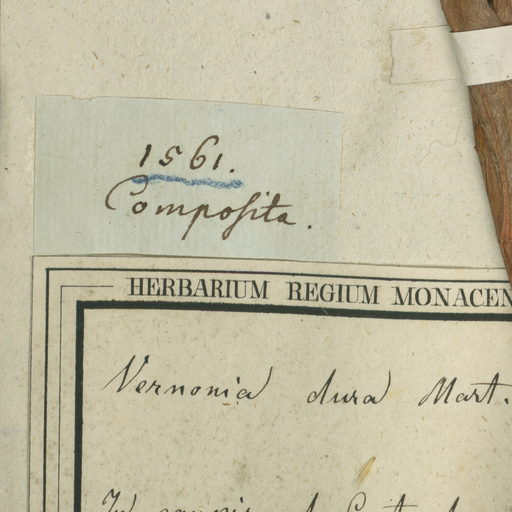 1561.
Composita.
HERBARIUM REGIUM MONACEN
Vernonia dura Mart.
In